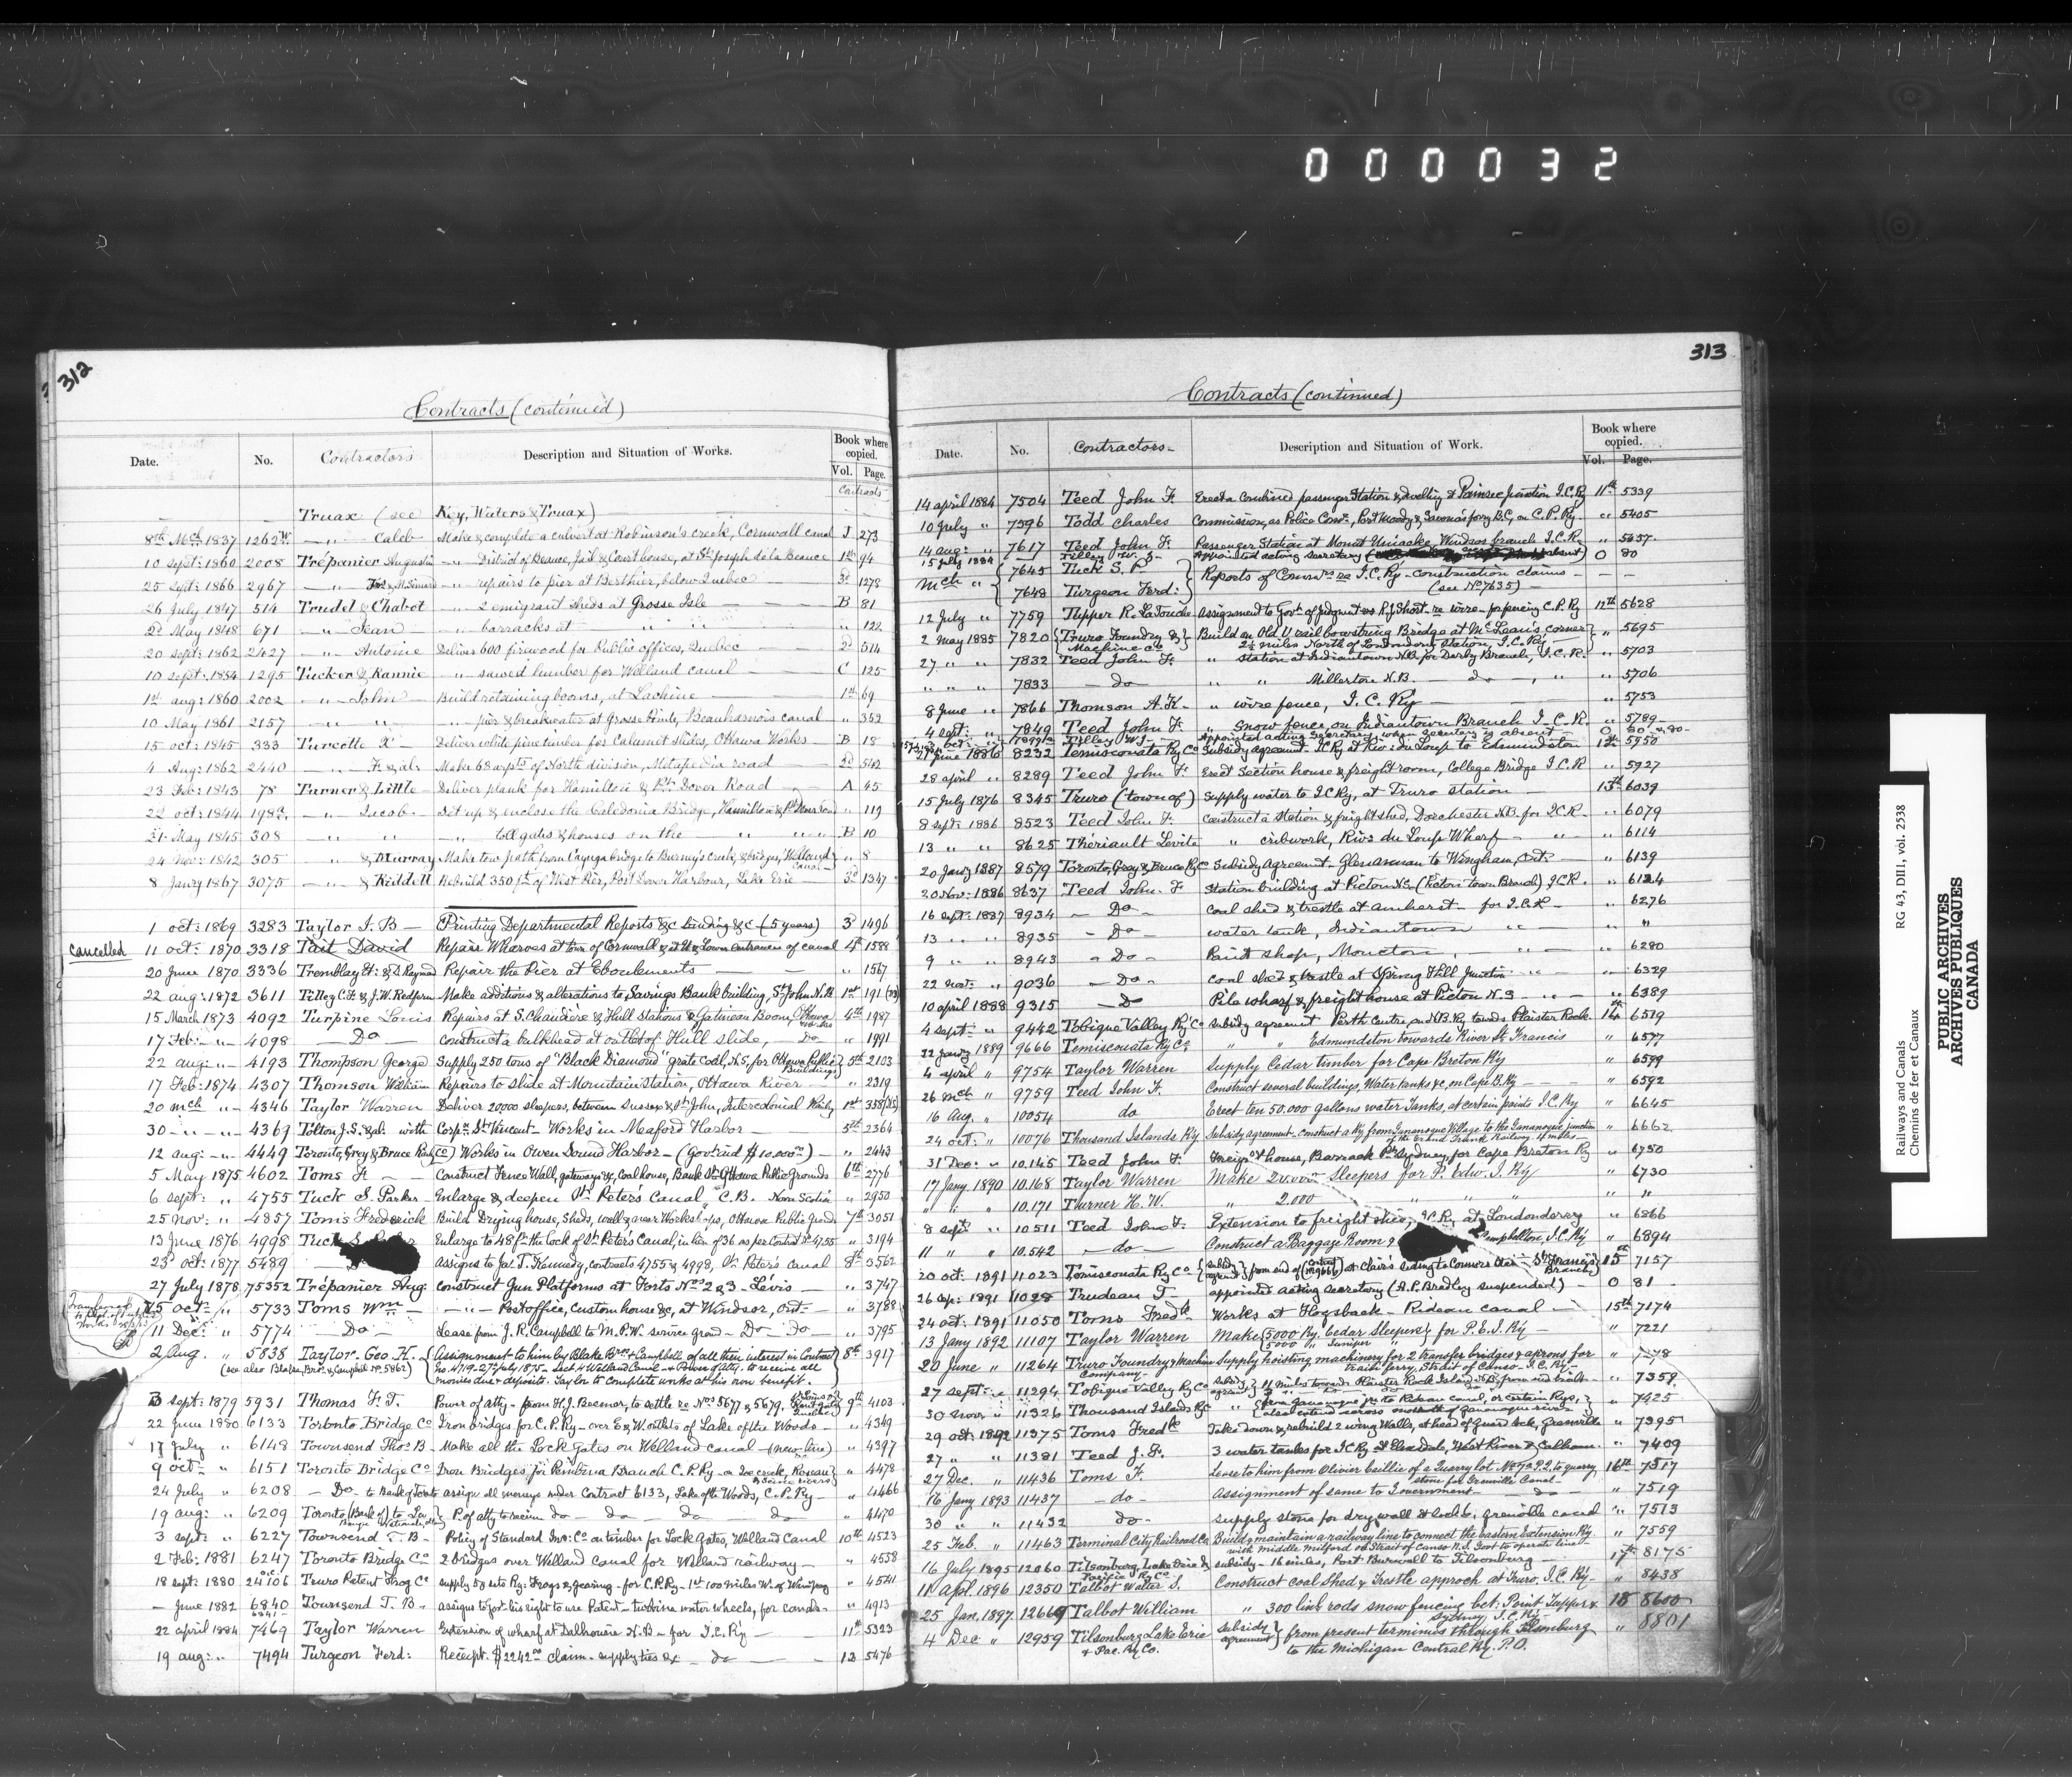 000032
312
Contracts (continued)
Date. No. Contractors Description and Situation of Works. Book where copied. Vol. Page.
Contracts
Truax (see Key, Waters & Truax)
8th Mch 1837 1262 W. —"— Caleb Make & complete a culvert at Robinson's creek, Cornwall canal J 273
10 sept: 1860 2008 Trépanier Augustin —"— District of Beauce, Jail & Court house, at St Joseph de la Beauce 1st 94
25 sept: 1866 2967 —"— & H. Simard —"— repairs to pier at Berthier, below Quebec 3d 1278
26 July 1847 514 Trudel & Chabot —"— 2 emigrant sheds at Grosse Isle B 81
2d May 1848 671 —"— Jean —"— barracks at " " " 122
20 sept: 1862 2427 —"— Antoine Deliver 600 firewood for Public offices, Quebec 2d 514
10 sept: 1884 1295 Tucker & Rannie —"— sawed lumber for Welland canal C 125
1st aug: 1860 2002 —"— John Build retaining booms, at Lachine 1st 69
10 May 1861 2157 —"— " —"— pier & breakwater at Grosse Pointe, Beauharnois canal " 352
15 oct: 1845 333 Turcotte X Deliver white pine timber for Calumet slides, Ottawa Works B 18
4 Aug: 1862 2440 —"— F. & al. Make 68 arpts of North division, Metapedia road 2d 542
23 Feb: 1843 78 Turner & Little Deliver plank for Hamilton & Pt Dover Road A 45
22 oct: 1844 198a —"— Jacob Set up & enclose the Caledonia Bridge, Hamilton & Pt Dover Road " 119
31 May 1845 308 " " " toll gates & houses on the " " " B 10
24 Nov: 1842 305 " & Murray Make tow path from Cayuga bridge to Burney's creek, & bridges, Welland Canal " 8
8 Janry 1867 3075 —"— & Riddell Rebuild 350 ft of West Pier, Port Dover Harbour, Lake Erie 3d 1347
1 oct: 1869 3283 Taylor I. B Printing Departmental Reports &c binding &c (5 years) 3 1496
Cancelled 11 oct: 1870 3318 Tait David Repair Wharves at town of Cornwall & at U & Lower entrances of canal 4th 1588
20 June 1870 3336 Tremblay H: & D Raymond Repair the Pier at Eboulements " 1567
22 aug: 1872 3611 Tilley C. F. & J. W. Redfern Make additions & alterations to Savings Bank building, St John N. B 1st 191
15 March 1873 4092 Turpine Louis Repairs at S. Chaudière & Hull stations & Gatineau Boom, Ottawa works 4th 1987
17 Feb: —"— 4098 Do construct a bulkhead at outlet of Hull slide, Do " 1991
22 aug: —"— 4193 Thompson George Supply 250 tons of "Black Diamond" grate coal, N.S, for Ottawa Public Buildings 5th 2103
17 Feb: 1874 4307 Thomson William Repairs to slide at Mountain Station, Ottawa River " 2319
20 mch " 4346 Taylor Warren Deliver 20000 sleepers, between Sussex & St John, Intercolonial Railway 1st 338
30 —"— 4369 Tolton J. S. & al. with Corpn St Vincent - Works in Meaford Harbor 5th 2364
12 aug: —"— 4449 Toronto, Grey & Bruce Railway (Co) Works in Owen Sound Harbor — (Govt aid $10.000) " 2443
5 May 1875 4602 Toms F. Construct Fence Wall, gateways & coalhouse, Bank St Ottawa Public Grounds 6th 2776
6 sept: " 4755 Tuck S. Parker Enlarge & deepen St Peter's Canal, C.B. Nova Scotia " 2950
25 nov: " 4857 Toms Frederick Build Drying house, Sheds, well & near Workshops, Ottawa Public Grounds 7th 3051
13 June 1876 4998 Tuck S. Enlarge to 48 ft the lock of St Peter's Canal, in lieu of 36 as per Contract No 4755 " 3194
23 oct: 1877 5489 assigns to Jas. T. Kennedy, contracts 4755 & 4998, St Peter's canal 8th 3562
27 July 1878 75352 Trépanier Aug: construct Gun Platforms at Forts Nos 2 & 3 - Lévis " 3747
25 oct: " 5733 Toms Wm —"— Post office, Custom house &c, at Windsor, Ont. " 3788
11 Dec: " 5774 Do Lease from J. R. Campbell to M. P. W. service ground — Do do " 3795
2 Aug. " 5838 Taylor Geo. H. Assignment to him by Blake Bros & Campbell of all their interest in Contract 8th 3917
No. 4719-27th July 1875 - Sect. 4 Welland Canal - & Power of Atty. to receive all
(see also Blake, Bros. & Campbell No. 5862) monies due & deposits. Taylor to complete works at his own benefit.
3 sept: 1879 5931 Thomas F. T. Power of atty - from H. J. Beemer, to settle re Nos 5677 & 5679, 9th 4103
22 June 1880 6133 Toronto Bridge Co Iron bridges for C.P.Ry - over E & W outlets of Lake of the Woods " 4349
17 July " 6148 Townsend Thos B Make all the Lock Gates on Welland canal - (new line) " 4397
9 oct: " 6151 Toronto Bridge Co Iron Bridges for Pembina Branch C. P. Ry - on Joe creek, Roseau & Seine rivers " 4478
24 July " 6208 Do to Bank of Toronto assign all moneys under Contract 6133, Lake of the Woods, C. P. Ry " 4466
19 aug: " 6209 Toronto (Bank of) to P. of atty to receive do do do do " 4470
3 sept: " 6227 Townsend T. B Policy of Standard Ins: Co on timber for Lock Gates, Welland Canal 10th 4523
2 Feb: 1881 6247 Toronto Bridge Co 2 bridges over Welland canal for Welland railway " 4558
18 sept: 1880 24106 Truro Patent Frog Co supply 50 sets Ry: Frogs & gearing - for C. P. Ry - 1st 100 miles W. of Winnipeg " 4541
— June 1882 6840 6841 Townsend T. B assigns to Govt his right to use Patent - turbine water wheels, for canals " 4913
22 april 1884 7469 Taylor Warren Extension of wharf at Dalhousie N. B - for I. C. Ry 11th 5323
19 aug: " 7494 Turgeon Ferd: Receipt. $2242.00 claim - supply ties &c do 12 5476
313
Contracts (continued)
Date. No. Contractors Description and Situation of Work. Book where copied. Vol. Page.
14 april 1884 7504 Teed John F. Erect a Combined passenger Station & dwelling at Painsec Junction I. C. Ry 11th 5339
10 July " 7596 Todd Charles Commission, as Police Comr, Port Moody & Savona's ferry B.C, on C. P. Ry " 5405
14 aug: " 7617 Teed John F. Passenger Station at Mount Uniacke, Windsor branch I. C. Ry " 5437
15 July 1884 Tilley W. J. Appointed acting secretary absent) O 80
Mch " 7645 Tuck S. P. Reports of Commrs re I. C. Ry - construction claims
7648 Turgeon Ferd: (see No 7635)
12 July " 7759 Tupper R. LaTouche Assignment to Govt of Judgment vs R. J. Short re wire - for fencing C. P. Ry 12th 5628
2 May 1885 7820 Truro Foundry & Machine Co Build an Old U rail bowstring Bridge at McLean's corner " 5695
2½ miles North of Londonderry Station, I. C. Ry
27 " " 7832 Teed John F. " station at Indiantown N.B. for Derby Branch, I. C. R. " 5703
" " " 7833 do " " Millerton N.B. do " " 5706
8 June " 7866 Thomson A. K. " wire fence, I. C. Ry " 5753
4 sept: " 7849 Teed John F. " Snow fence on Indiantown Branch I. C. R. " 5789
Tilley W. J. Appointed acting secretary, when secretary is absent O 80 & 80
21 June 1886 8232 Temiscouata Ry Co Subsidy agreement - I C Ry at Riv: du Loup to Edmundston 12th 5950
28 april " 8289 Teed John F. Erect Section house & freight room, College Bridge I. C. R " 5927
15 July 1876 8345 Truro (town of) Supply water to I C Ry, at Truro station 13th 6039
8 sept: 1886 8523 Teed John F. construct a station & freight shed, Dorchester N.B. for I C R. " 6079
13 " " 8625 Thériault Levite " cribwork, Riv. du Loup Wharf " 6114
20 Janry 1887 8579 Toronto, Grey & Bruce Ry Co Subsidy Agreement - Glenannan to Wingham, Ont: " 6139
20 Nov: 1886 8637 Teed John. F Station building at Pictou N.S. (Pictou Town Branch) I C R. " 6124
16 sept: 1887 8934 Do coal shed & trestle at Amherst - for I. C. R " 6276
13 " " 8935 Do water tank, Indiantown " " "
9 " " 8943 Do Paint shop, Moncton " 6280
22 nov: " 9036 Do coal shed & trestle at Spring Hill Junction " " 6329
10 april 1888 9315 Do Pile wharf & freight house at Pictou N. S " " 6389
4 sept: " 9442 Tobique Valley Ry Co subsidy agreement Perth Centre, on N.B. Ry towards Plaister Rock 14th 6519
22 Janry 1889 9666 Temiscouata Ry Co " " Edmundston towards River St. Francis " 6577
4 april " 9754 Taylor Warren Supply Cedar timber for Cape Breton Ry " 6599
26 mch " 9759 Teed John F. Construct several buildings, Water tanks &c, on Cape B. Ry " 6592
16 Aug. " 10054 do Erect ten 50.000 gallons water Tanks, at certain points I. C. Ry " 6645
24 oct: " 10076 Thousand Islands Ry Subsidy agreement - Construct a Ry from Gananoque Village to the Gananoque junction " 6662
of the Grand Trunk Railway - 4 miles
31 Dec: " 10.145 Teed John F. Freight house, Barrack Pt Sydney, for Cape Breton Ry " 6750
17 Jany. 1890 10.168 Taylor Warren Make Sleepers for P. Edw. I. Ry " 6730
" " " 10.171 Turner H. W. " 2.000 " " " " "
8 sept " 10511 Teed John F. Extension to freight shed, I. C. R, at Londonderry " 6866
11 " " 10.542 do Construct a Baggage Room & Campbellton, I. C. Ry " 6894
20 oct: 1891 11023 Temiscouata Ry Co subsidy agreemt from end of (contract No 9666) at Clair's Landing to Connors Stn - St Francis Branch 15th 7157
26 Sep: 1891 11028 Trudeau T appointed acting secretary (A. P. Bradley suspended) O 81
24 oct: 1891 11050 Toms Fredk Works at Hogsback - Rideau canal 15th 7174
13 Jany 1892 11107 Taylor Warren Make 5000 Ry. Cedar Sleepers for P. E. I. Ry " 7221
5000 " Juniper "
20 June " 11264 Truro Foundry & Machine Company Supply hoisting machinery for 2 transfer bridges & aprons for " 7278
train ferry, Strait of Canso - I. C. Ry
27 sept: " 11294 Tobique Valley Ry Co subsidy agreemt 11 miles towards Plaister Rock Island, N.B. from end built " 7358
30 Nov. " 11326 Thousand Islands Ry Co " from Gananoque jn. to Rideau canal, or certain Rys, " 7425
also extend across mouth of Gananoque river
29 oct: 1892 11375 Toms Fredk Take down & rebuild 2 wing Walls, at head of guard lock, Grenville " 7395
27 " " 11381 Teed J. F. 3 water tanks for I C Ry at Elmsdale, West River & Calhoun " 7409
27 Dec. " 11436 Toms F. Lease to him from Olivier Baillie of a Quarry lot to quarry 16th 7517
stone for Grenville Canal
16 Jany 1893 11437 do Assignment of same to Government do " 7519
30 " " 11432 do supply stone for dry wall at lock 6, Grenville canal " 7513
25 Feb. " 11463 Terminal City Railroad Co Build & maintain a railway line to connect the Eastern Extension Ry. " 7559
with middle Milford on Strait of Canso N.S. Govt to operate line
16 July 1895 12060 Tilsonburg Lake Erie & Pacific Ry Co. subsidy - 16 miles, Port Burwell to Tilsonburg 17th 8175
11 April 1896 12350 Talbot Walter S. Construct coal shed & Trestle approch at Truro. I. C. Ry " 8438
25 Jan. 1897 12669 Talbot William " 300 link rods snow fencing bet. Point Tupper & 18 8600
Sydney I. C. Ry
4 Dec " 12959 Tilsonburg Lake Erie subsidy agreement from present terminus through Tilsonburg " 8801
& Pac. Ry Co. to the Michigan Central Ry. P.O.
Railways and Canals RG 43, DIII, vol. 2538
Chemins de fer et Canaux
PUBLIC ARCHIVES
ARCHIVES PUBLIQUES
CANADA